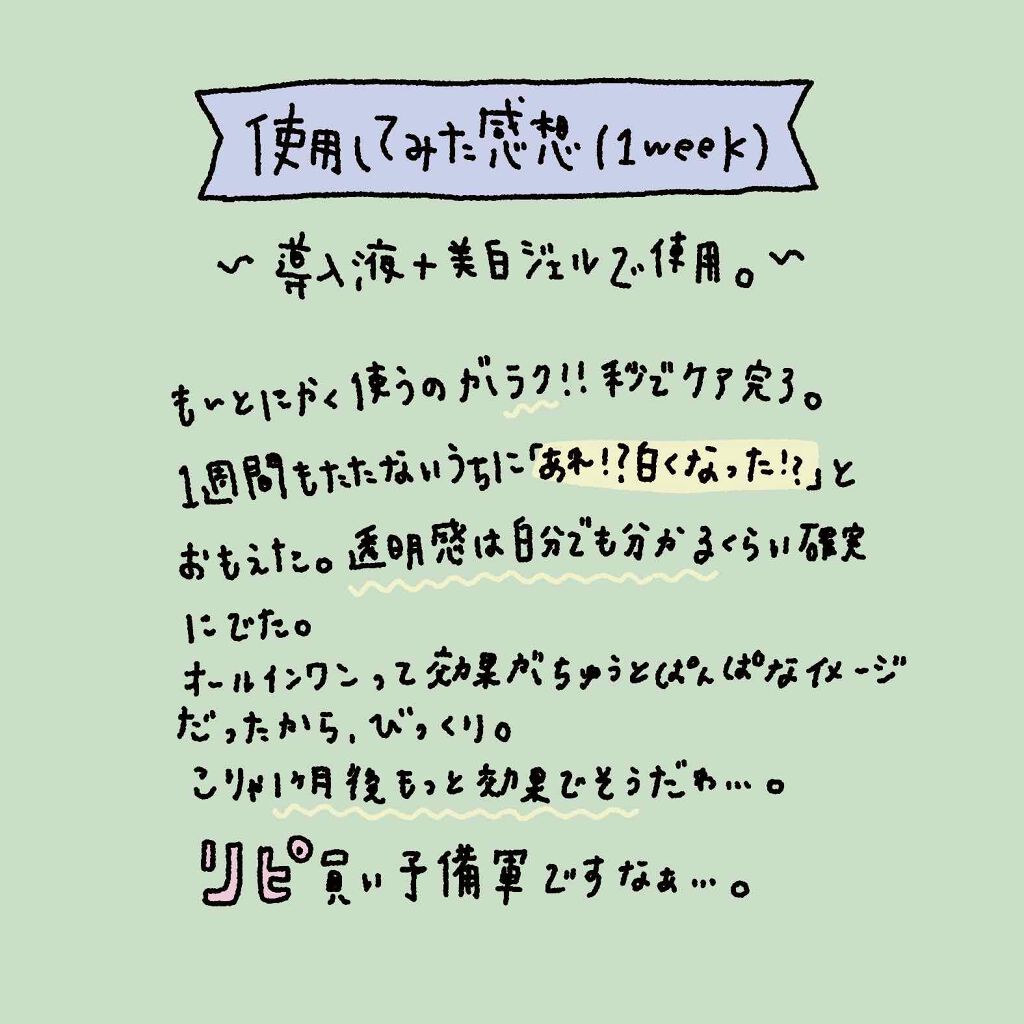 使用してみた感想(1week)
〜導入液+美白ジェルで使用。〜
も〜とにかく使うのがラク!!秒でケア完了。
1週間もたたないうちに「あれ!?白くなった!?」と
おもえた。透明感は自分でも分かるくらい確実
にでた。
オールインワンって効果がちゅうとぱんぱなイメージ
だったから、びっくり。
こりゃ1ヶ月後もっと効果でそうだわ…。
リピ買い予備軍ですなぁ…。